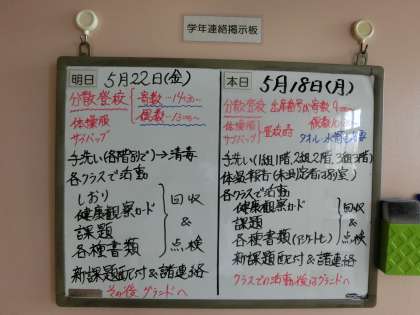 学年連絡掲示板
明日 5月22日(金)
分散登校 奇数…
偶数…
体操服
サブバッグ
手洗い(各階別で)→消毒
各クラスで活動
しおり
健康観察カード
課題
各種書類
回収
&
点検
新課題配付&諸連絡
その後 グランドへ
本日 5月18日(月)
分散登校 出席番号が奇数
偶数
体操服
サブバッグ
登校時
タオル・水筒
手洗い(1組1階,2組2階,3組3階)
体温報告(未測定者は別室)
各クラスで活動
健康観察カード
課題
各種書類(アンケート七)
回収
&
点検
新課題配付&諸連絡
クラスでの活動後はグランドへ